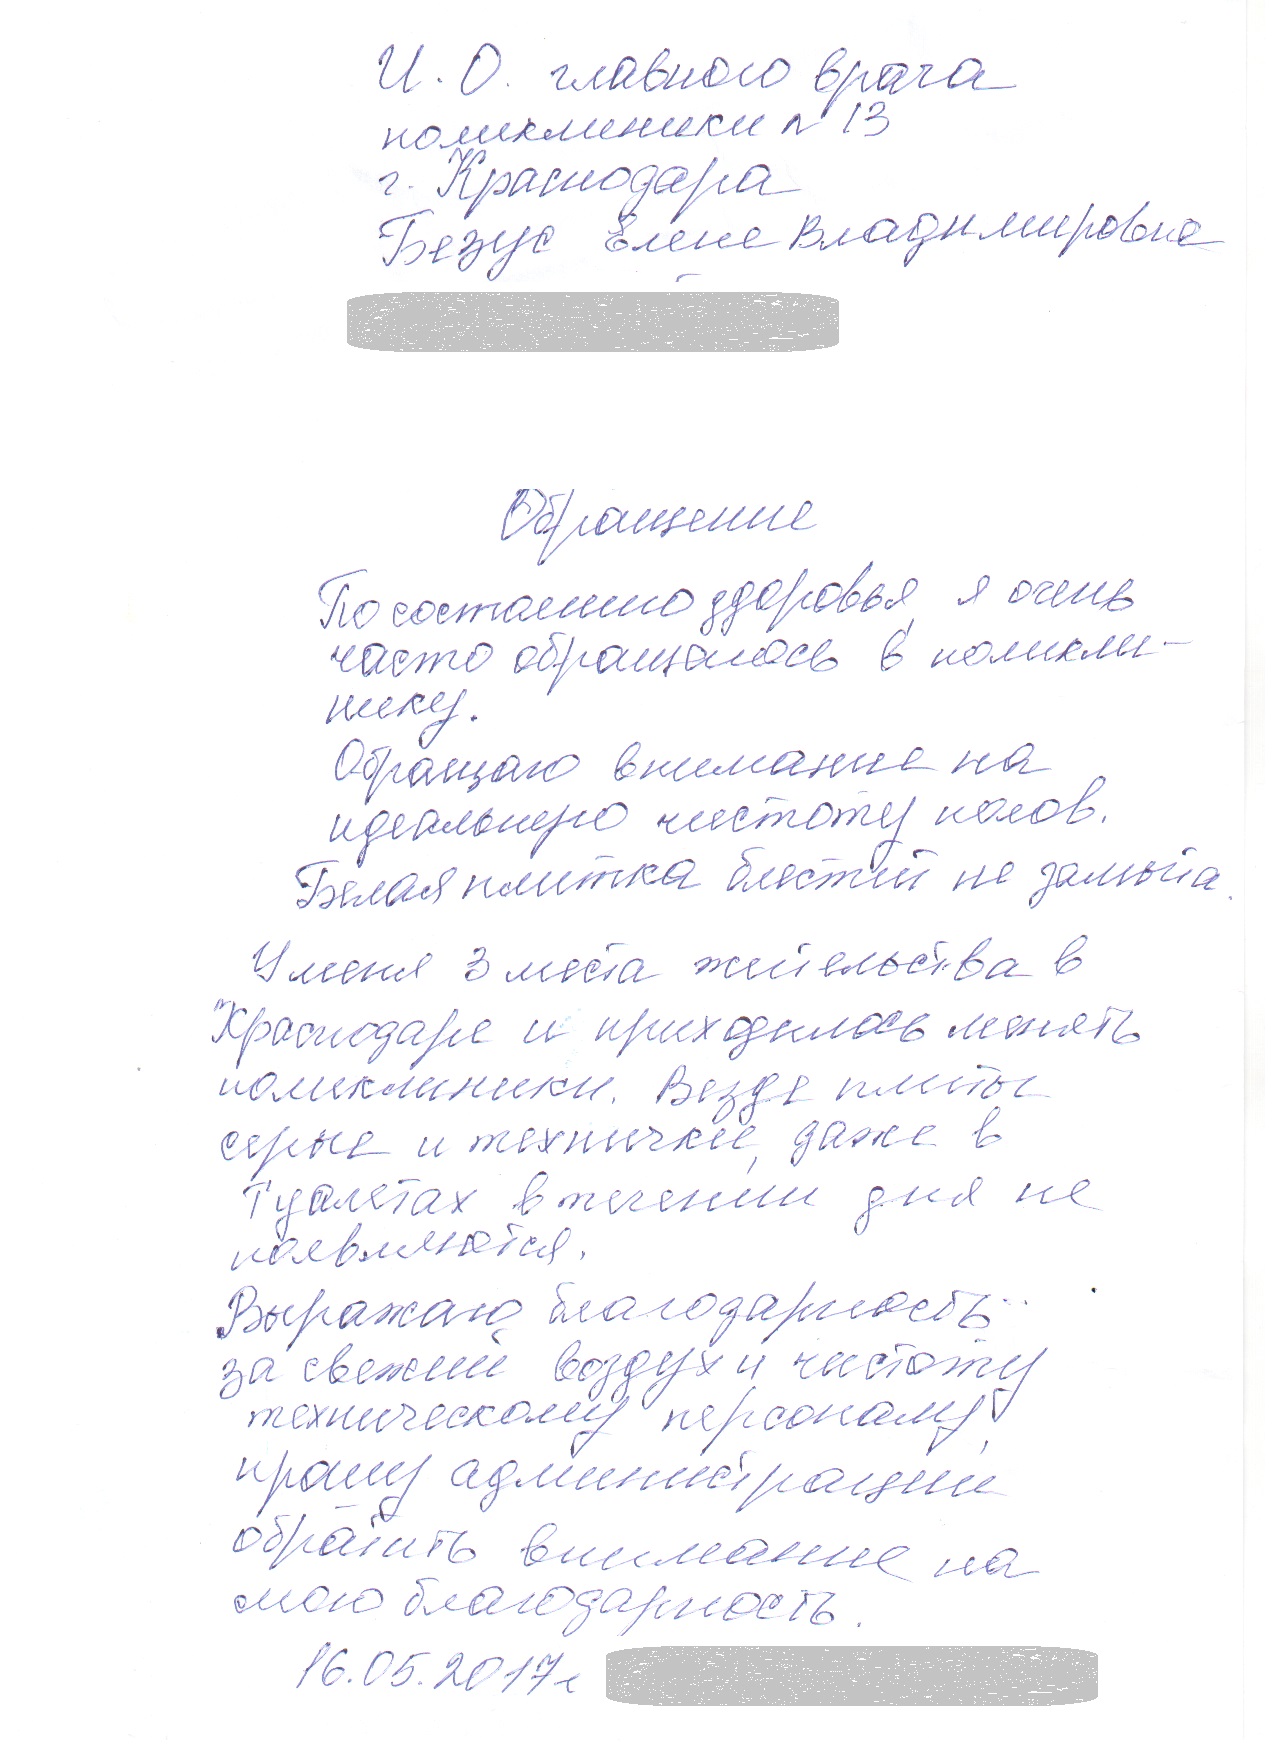 И.О. главного врача
поликлиники № 13
г. Краснодара
Безус Елене Владимировне
Обращение
По состоянию здоровья, я очень
часто обращаюсь в поликли-
нику.
Обращаю внимание на
идеальную чистоту полов.
Белая плитка блестит не
У меня 3 места жительства в
Краснодаре и приходилось менять
поликлиники. Везде плиты
серые и технички, даже в
туалетах в течении дня не
появляются.
Выражаю благодарность
за свежий воздух и чистоту
техническому персоналу,
прошу администрации
обратить внимание на
мою благодарность.
16.05.2017г